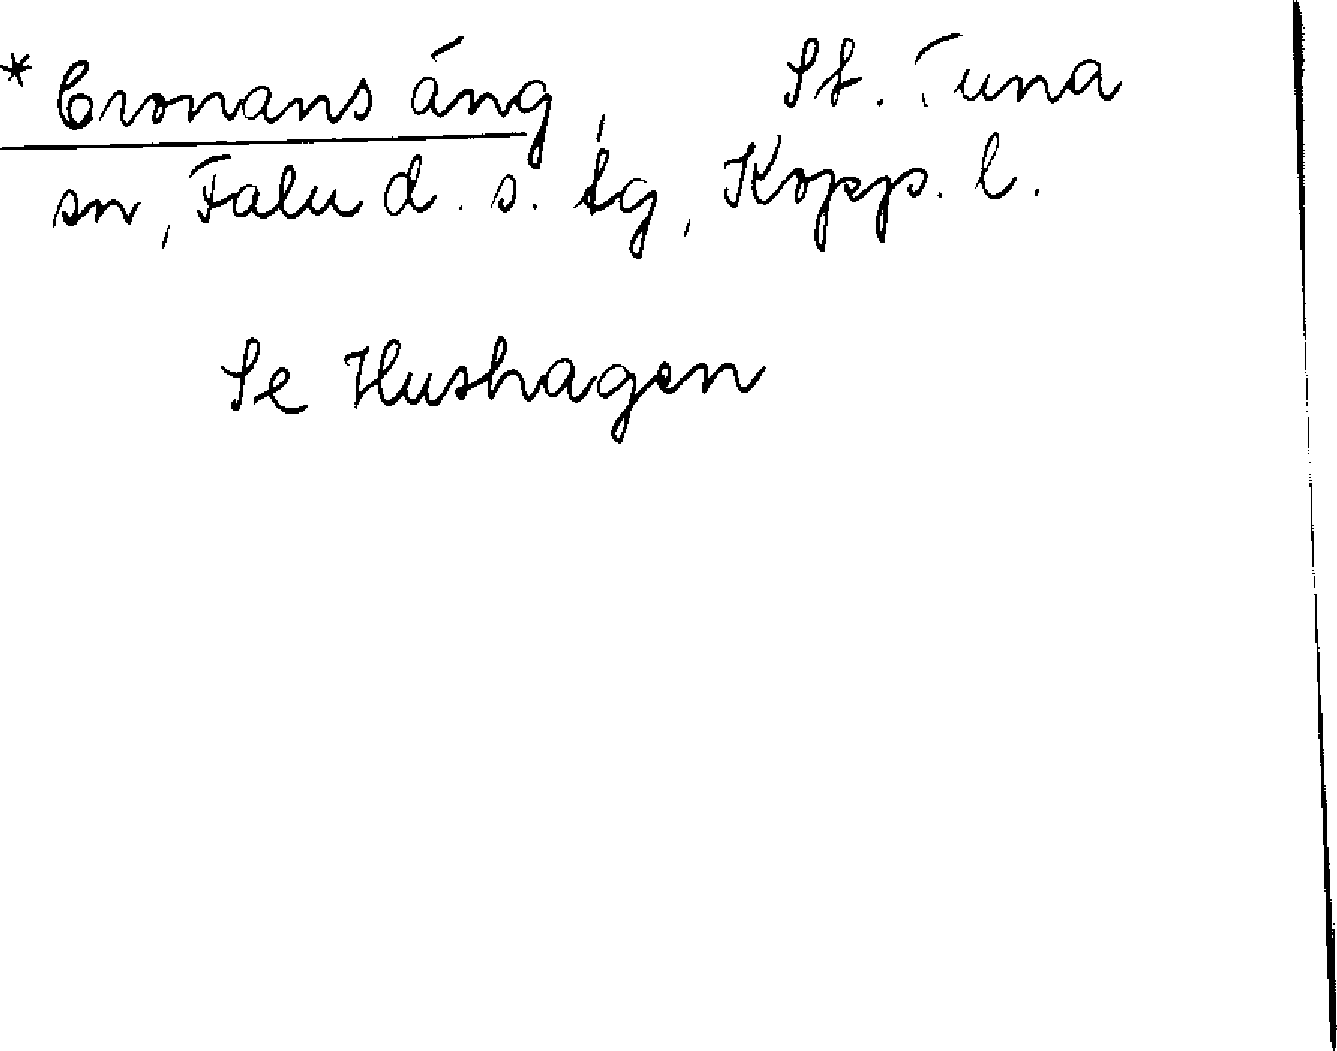 * Cronans äng, St. Tuna
sn, Falu d. s. tg, Kopp. l.
Se Hushagen